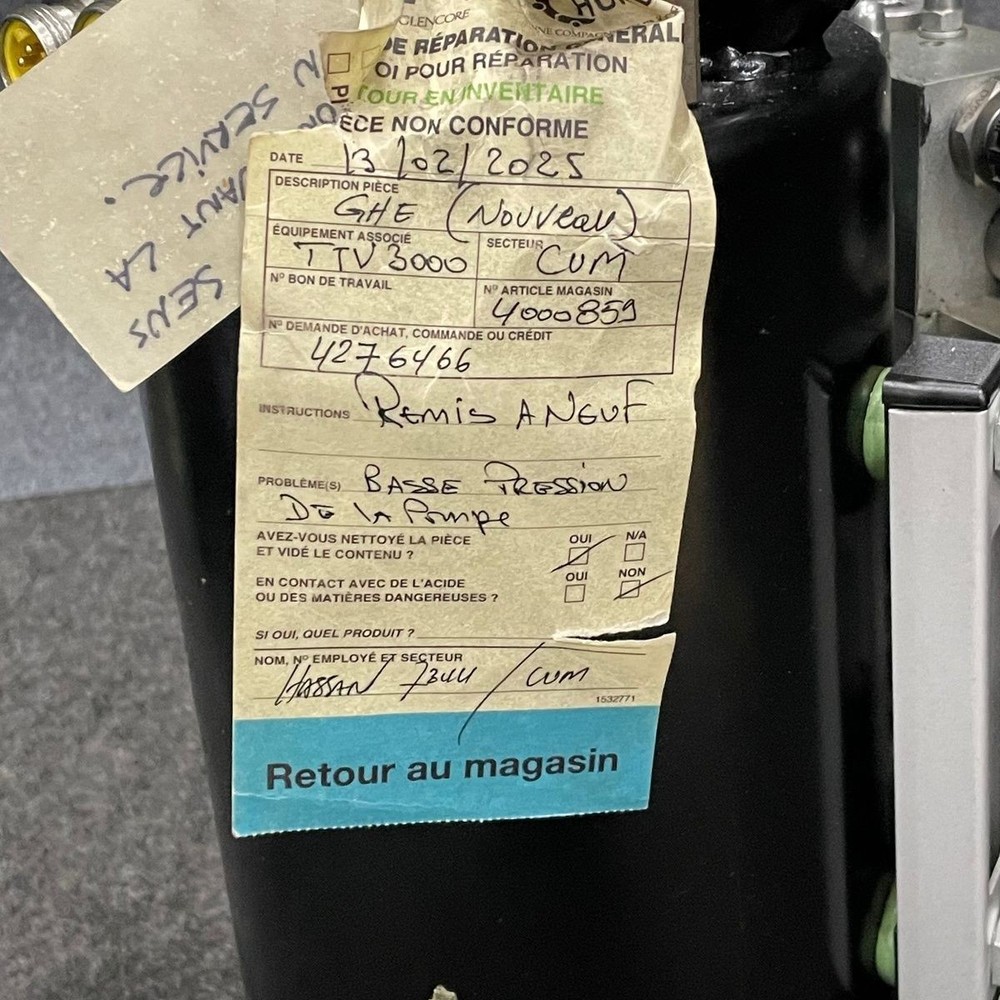 GLENCORE
HORNE
NE COMPAGNIE
DE RÉPARATION GÉNÉRAL
OI POUR RÉPARATION
TOUR EN INVENTAIRE
PIÈCE NON CONFORME
DATE 13/02/2025
DESCRIPTION PIÈCE
GHE (NOUVEAU)
ÉQUIPEMENT ASSOCIÉ
TTV 3000
SECTEUR
CUM
Nº BON DE TRAVAIL
Nº ARTICLE MAGASIN
4000859
Nº DEMANDE D'ACHAT, COMMANDE OU CRÉDIT
4276466
INSTRUCTIONS REMIS A NEUF
PROBLÈME(S) BASSE PRESSION
DE LA POMPE
AVEZ-VOUS NETTOYÉ LA PIÈCE
ET VIDÉ LE CONTENU ?
OUI N/A
EN CONTACT AVEC DE L'ACIDE
OU DES MATIÈRES DANGEREUSES ?
OUI NON
SI OUI, QUEL PRODUIT ?
NOM, Nº EMPLOYÉ ET SECTEUR
HASSAN 7344 / CUM
1532771
Retour au magasin
SENS
LA
SERVICE.